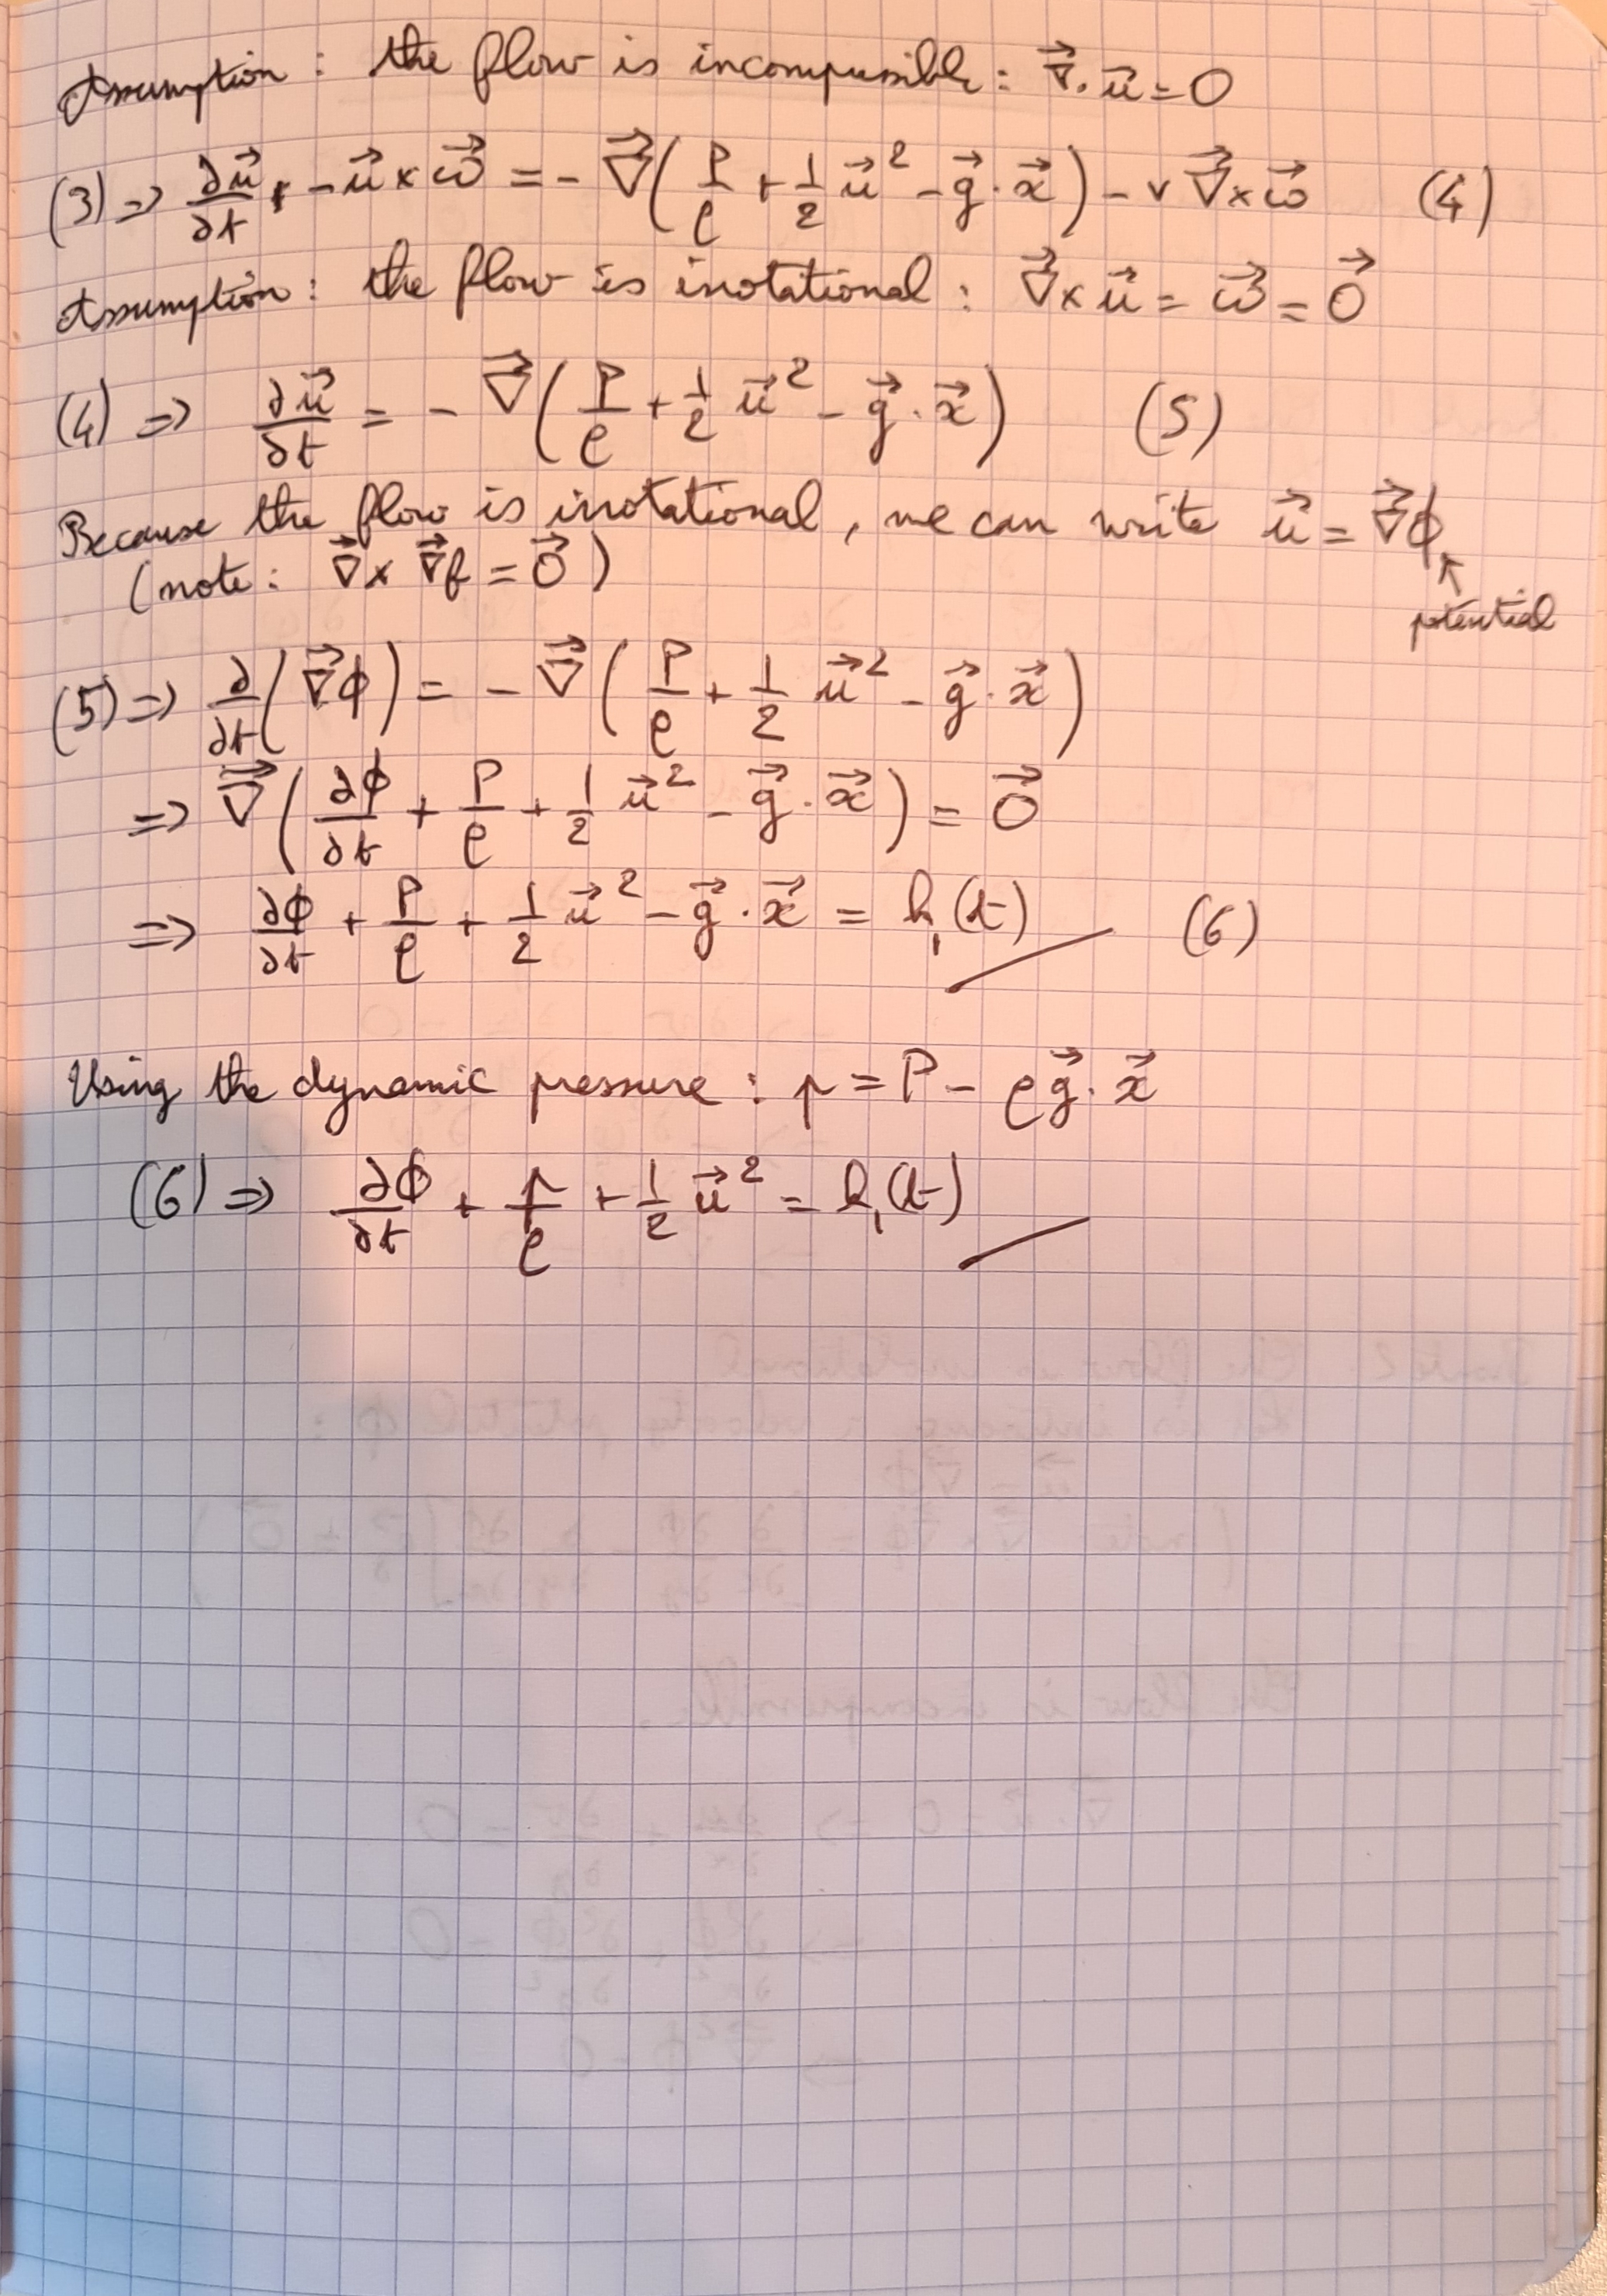 Assumption : the flow is incompressible : ∇⃗·u⃗ = 0
(3) => ∂u⃗/∂t - u⃗ × ω⃗ = - ∇⃗(P/ρ + 1/2 u⃗² - g⃗·x⃗) - ν ∇⃗×ω⃗ (4)
Assumption : the flow is irrotational : ∇⃗×u⃗ = ω⃗ = 0⃗
(4) => ∂u⃗/∂t = - ∇⃗(P/ρ + 1/2 u⃗² - g⃗·x⃗) (5)
Because the flow is irrotational, we can write u⃗ = ∇⃗ϕ
(note : ∇⃗× ∇⃗f = 0⃗)
potential
(5) => ∂/∂t(∇⃗ϕ) = - ∇⃗(P/ρ + 1/2 u⃗² - g⃗·x⃗)
=> ∇⃗(∂ϕ/∂t + P/ρ + 1/2 u⃗² - g⃗·x⃗) = 0⃗
=> ∂ϕ/∂t + P/ρ + 1/2 u⃗² - g⃗·x⃗ = k₁(t) (6)
Using the dynamic pressure : p = P - ρg⃗·x⃗
(6) => ∂ϕ/∂t + p/ρ + 1/2 u⃗² = k₁(t)